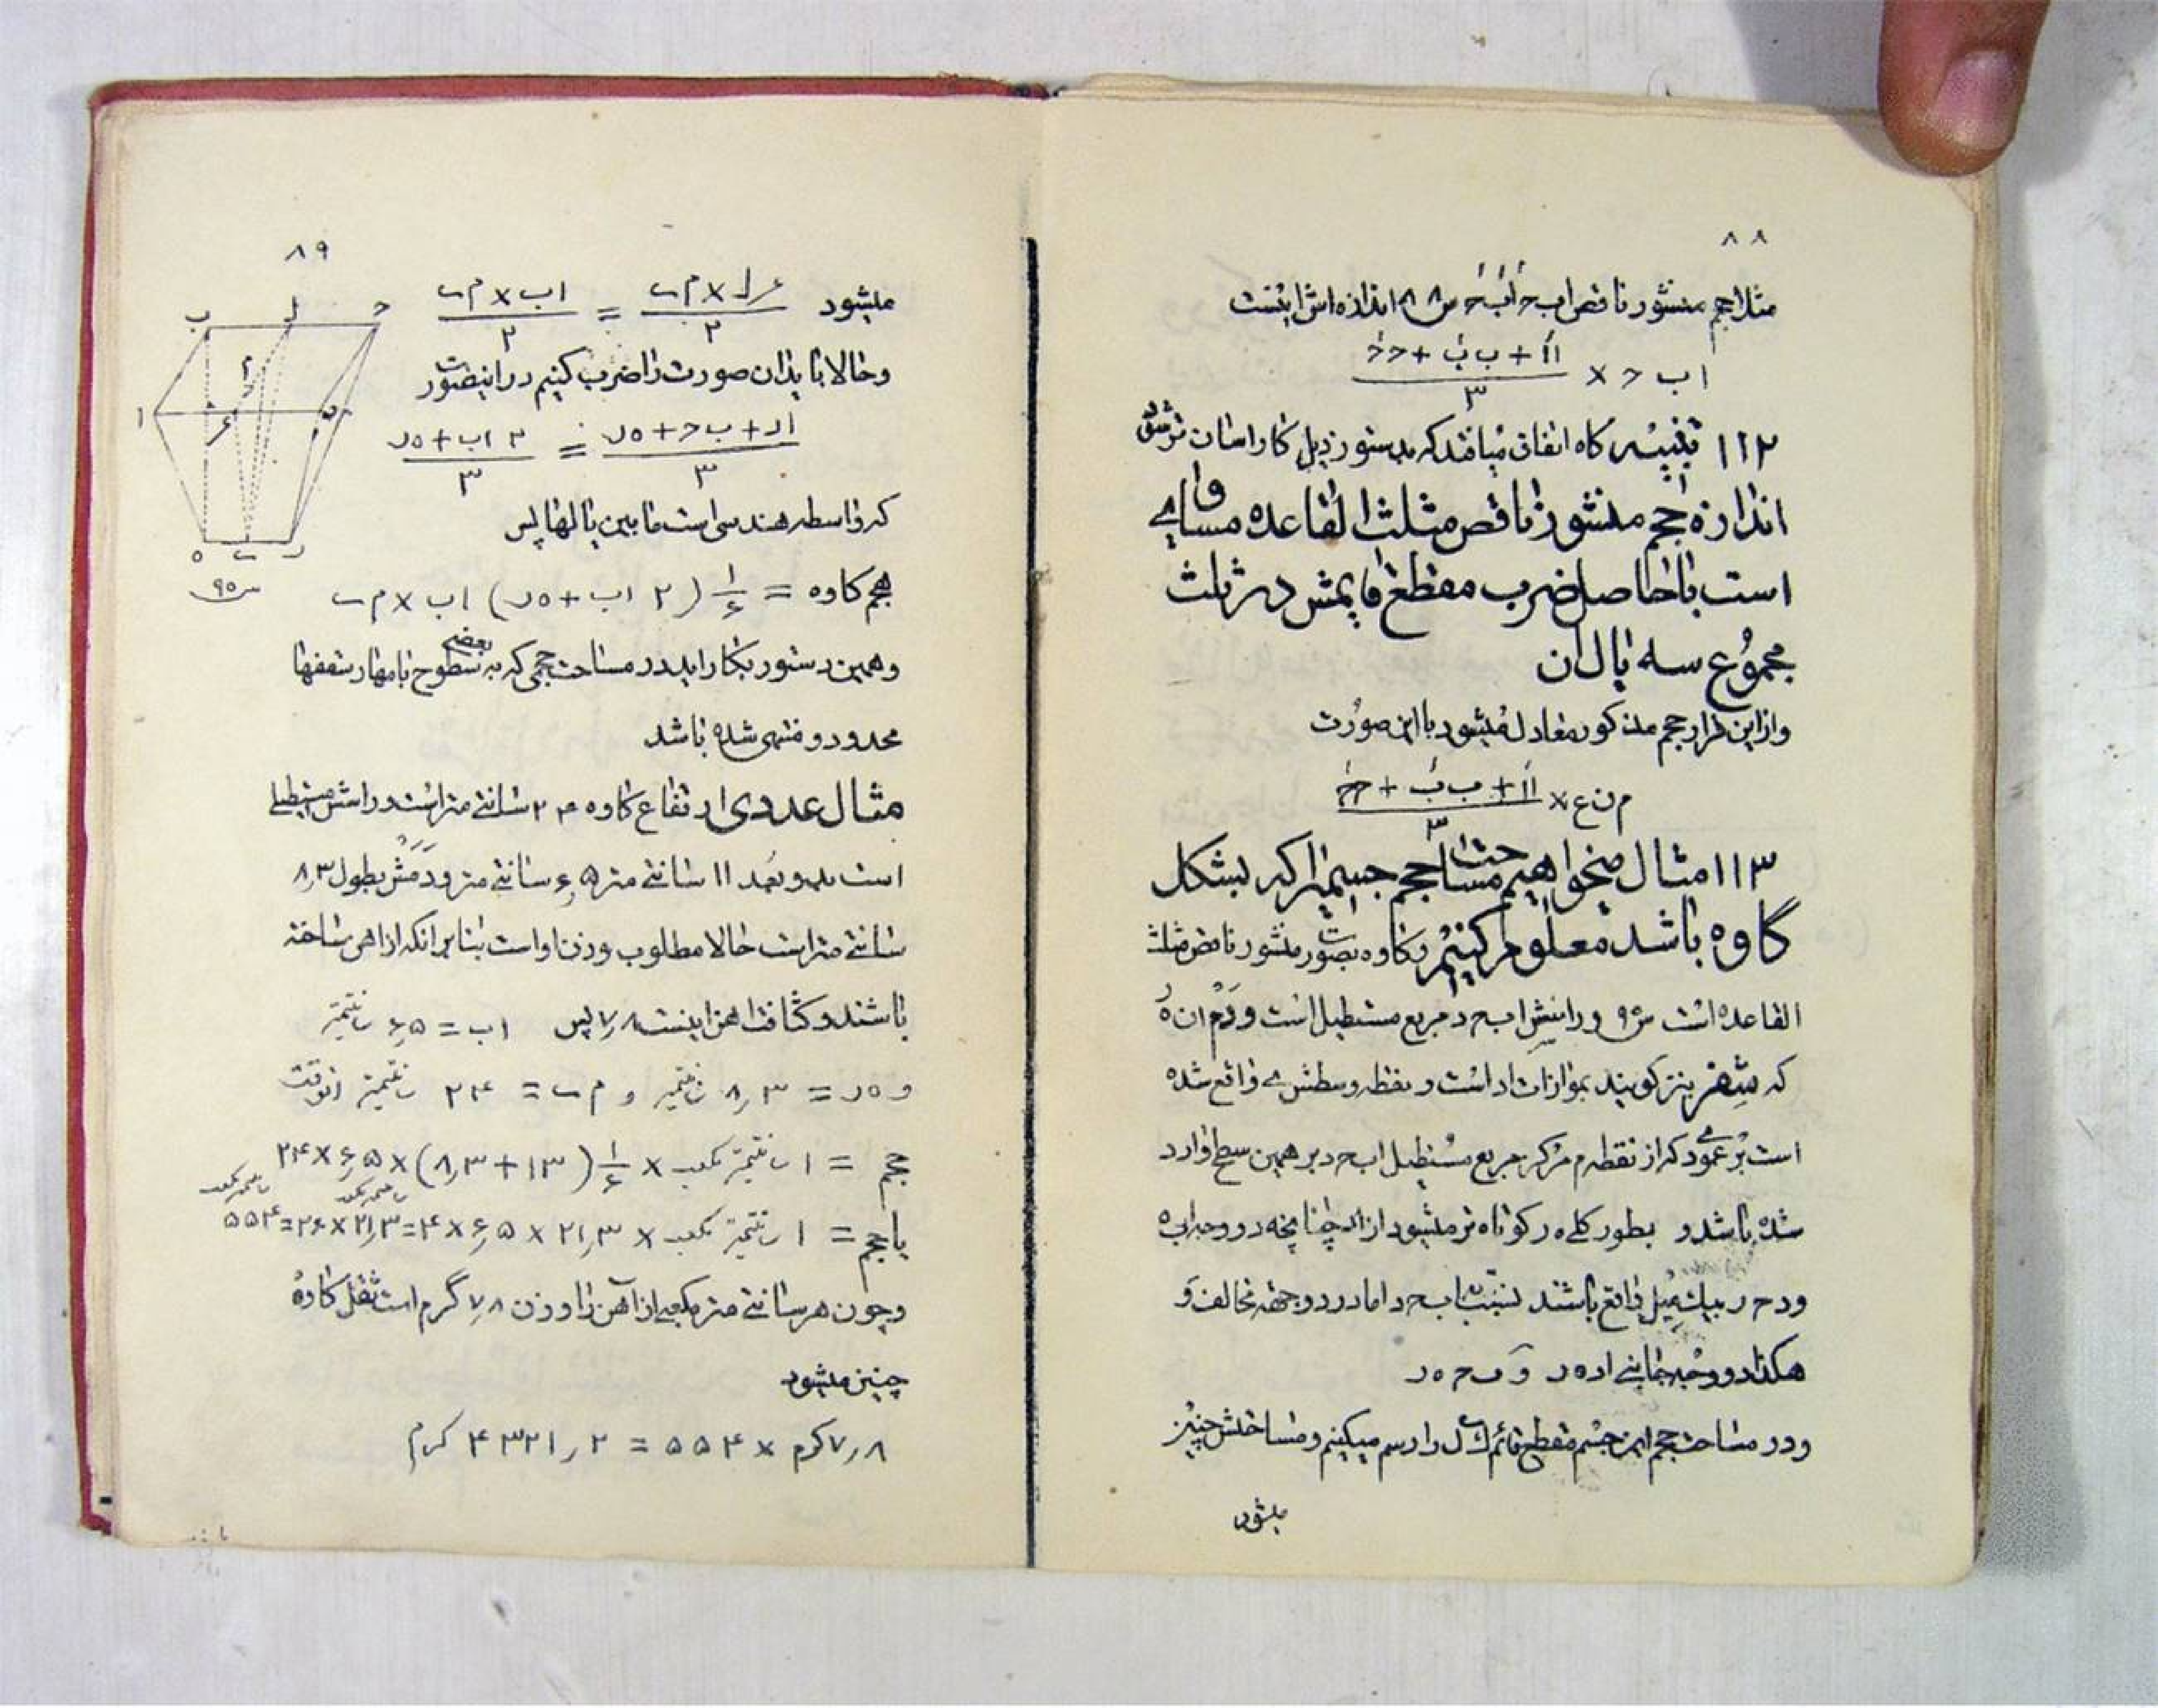 ۸۸
مثلا حجم منشور ناقص اب ح اَبَ حَ س ۸۸ اندازه اش اینست
اب ح × (ااَ + ب بَ + ح حَ) / ۳
۱۱۲ تنبیه کاه اتفاق میافتد که بدستور ذیل کار اسان تر شود
اندازه حجم منشور ناقص مثلث القاعده مساوی
است با حاصل ضرب مقطع قایمش در ثلث
مجموع سه یال ان
و از این قرار حجم مذکور معادل میشود با این صورت
م ن ع × (ااَ + ب بَ + ح حَ) / ۳
۱۱۳ مثال میخواهیم مساحت حجم جسمیرا که بشکل
گاوه باشد معلوم کنیم و کاوه بصورت منشور ناقص مثلث
القاعده است و رانش اب ح د مربع مستطیل است و دم ان ه ر
که نیز کویند بموازات اد است و نقطه وسطش ی واقع شده
است بر عمودی که از نقطه م مرکز مربع مستطیل اب ح د بر همین سطح وارد
شده باشد و بطور کلی ه ر کوتاه تر میشود از اد چنانچه دو وجه اب ه
و د ح ر بیک میل واقع باشند نسبت به اب ح د اما در دو جهة مخالف و
هکذا دو وجه جانبی اد ه ر و ب ح ه ر
و در مساحت حجم این جسم مقطع قائم ک ی ل را رسم میکنیم و مساحتش چنین
میشود
۸۹
میشود (ع ل × م ی) / ۲ = (اب × م ی) / ۲
و حالا باید ان صورت را ضرب کنیم در اینصورت
(اد + ب ح + ه ر) / ۳ = (۲ اب + ه ر) / ۳
که واسطه هندسی است ما بین یالها پس
حجم کاوه = ۱/۶ (۲ اب + ه ر) اب × م ی
و همین دستور بکار اید در مساحت حجمی که به بعضی سطوح بامها و سقفها
محدود و منتهی شده باشد
مثال عددی ارتفاع کاوه ۲۴ سانتی متر است و رانش مستطیلی
است بدو بعد ۱۱ سانتی متر ۶٫۵ سانتی متر و دمش بطول ۸٫۳
سانتی متر است حالا مطلوب وزن او است بنابر انکه از اهن ساخته
باشند و کثافت اهن اینست ۷٫۸ پس اب = ۶٫۵ سانتیمتر
و ه ر = ۸٫۳ سانتیمتر و م ی = ۲۴ سانتیمتر انوقت
حجم = ۱ سانتیمتر مکعب × ۱/۶ (۱۳ + ۸٫۳) × ۶٫۵ × ۲۴
یا حجم = ۱ سانتیمتر مکعب × ۲۱٫۳ × ۶٫۵ × ۴ = ۲۱٫۳ × ۲۶ = ۵۵۴ سانتیمتر مکعب
و چون هر سانتی متر مکعبی از آهن را وزن ۷٫۸ گرم است ثقل کاوه
چنین میشود
۷٫۸ کرم × ۵۵۴ = ۴۳۲۱٫۲ کرم
ب ل ح
م
ا ع ک د
ه ی ر